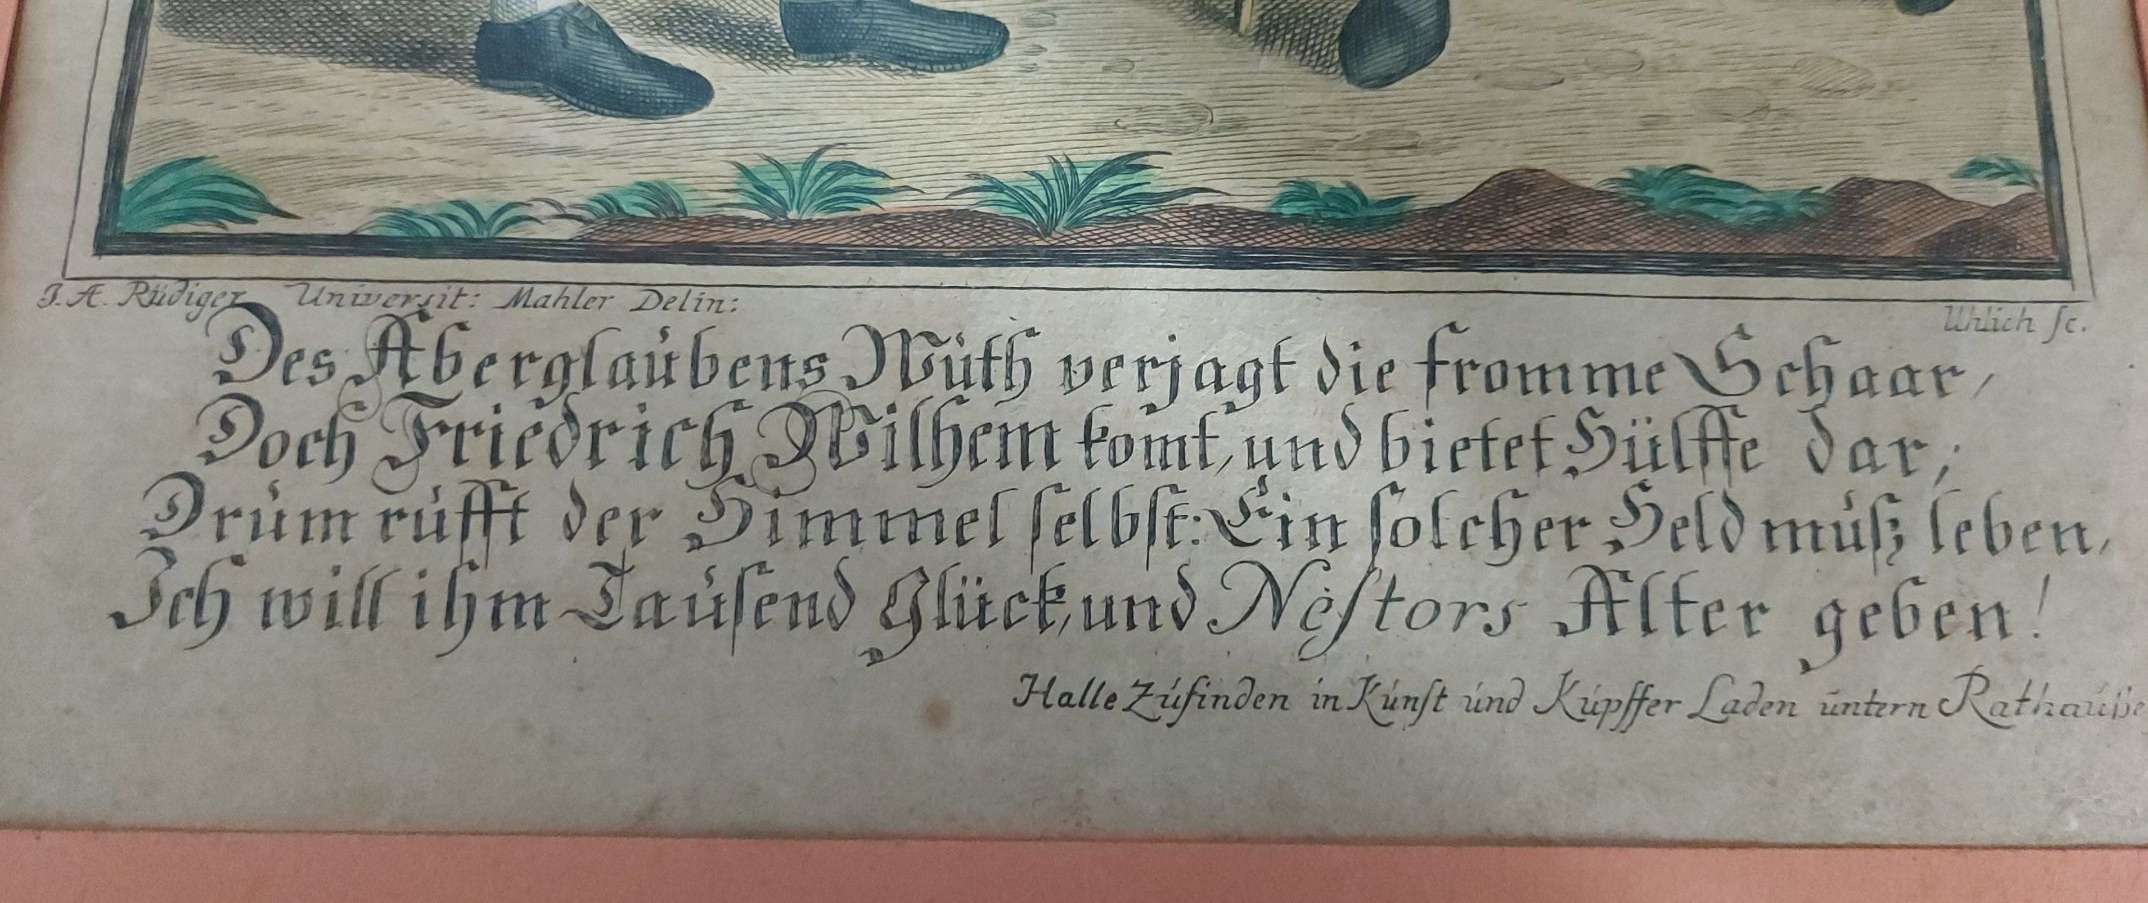 J. A. Rüdiger Universit: Mahler Delin:
Uhlich sc.
Des Aberglaubens Wüth verjagt die fromme Schaar,
Doch Friedrich Wilhem komt, und bietet Hülffe dar;
Drum rufft der Himmel selbst: Ein solcher Held muß leben,
Ich will ihm Tausend Glück, und Nestors Alter geben!
Halle Zufinden in Kunst und Kupffer Laden untern Rathauße